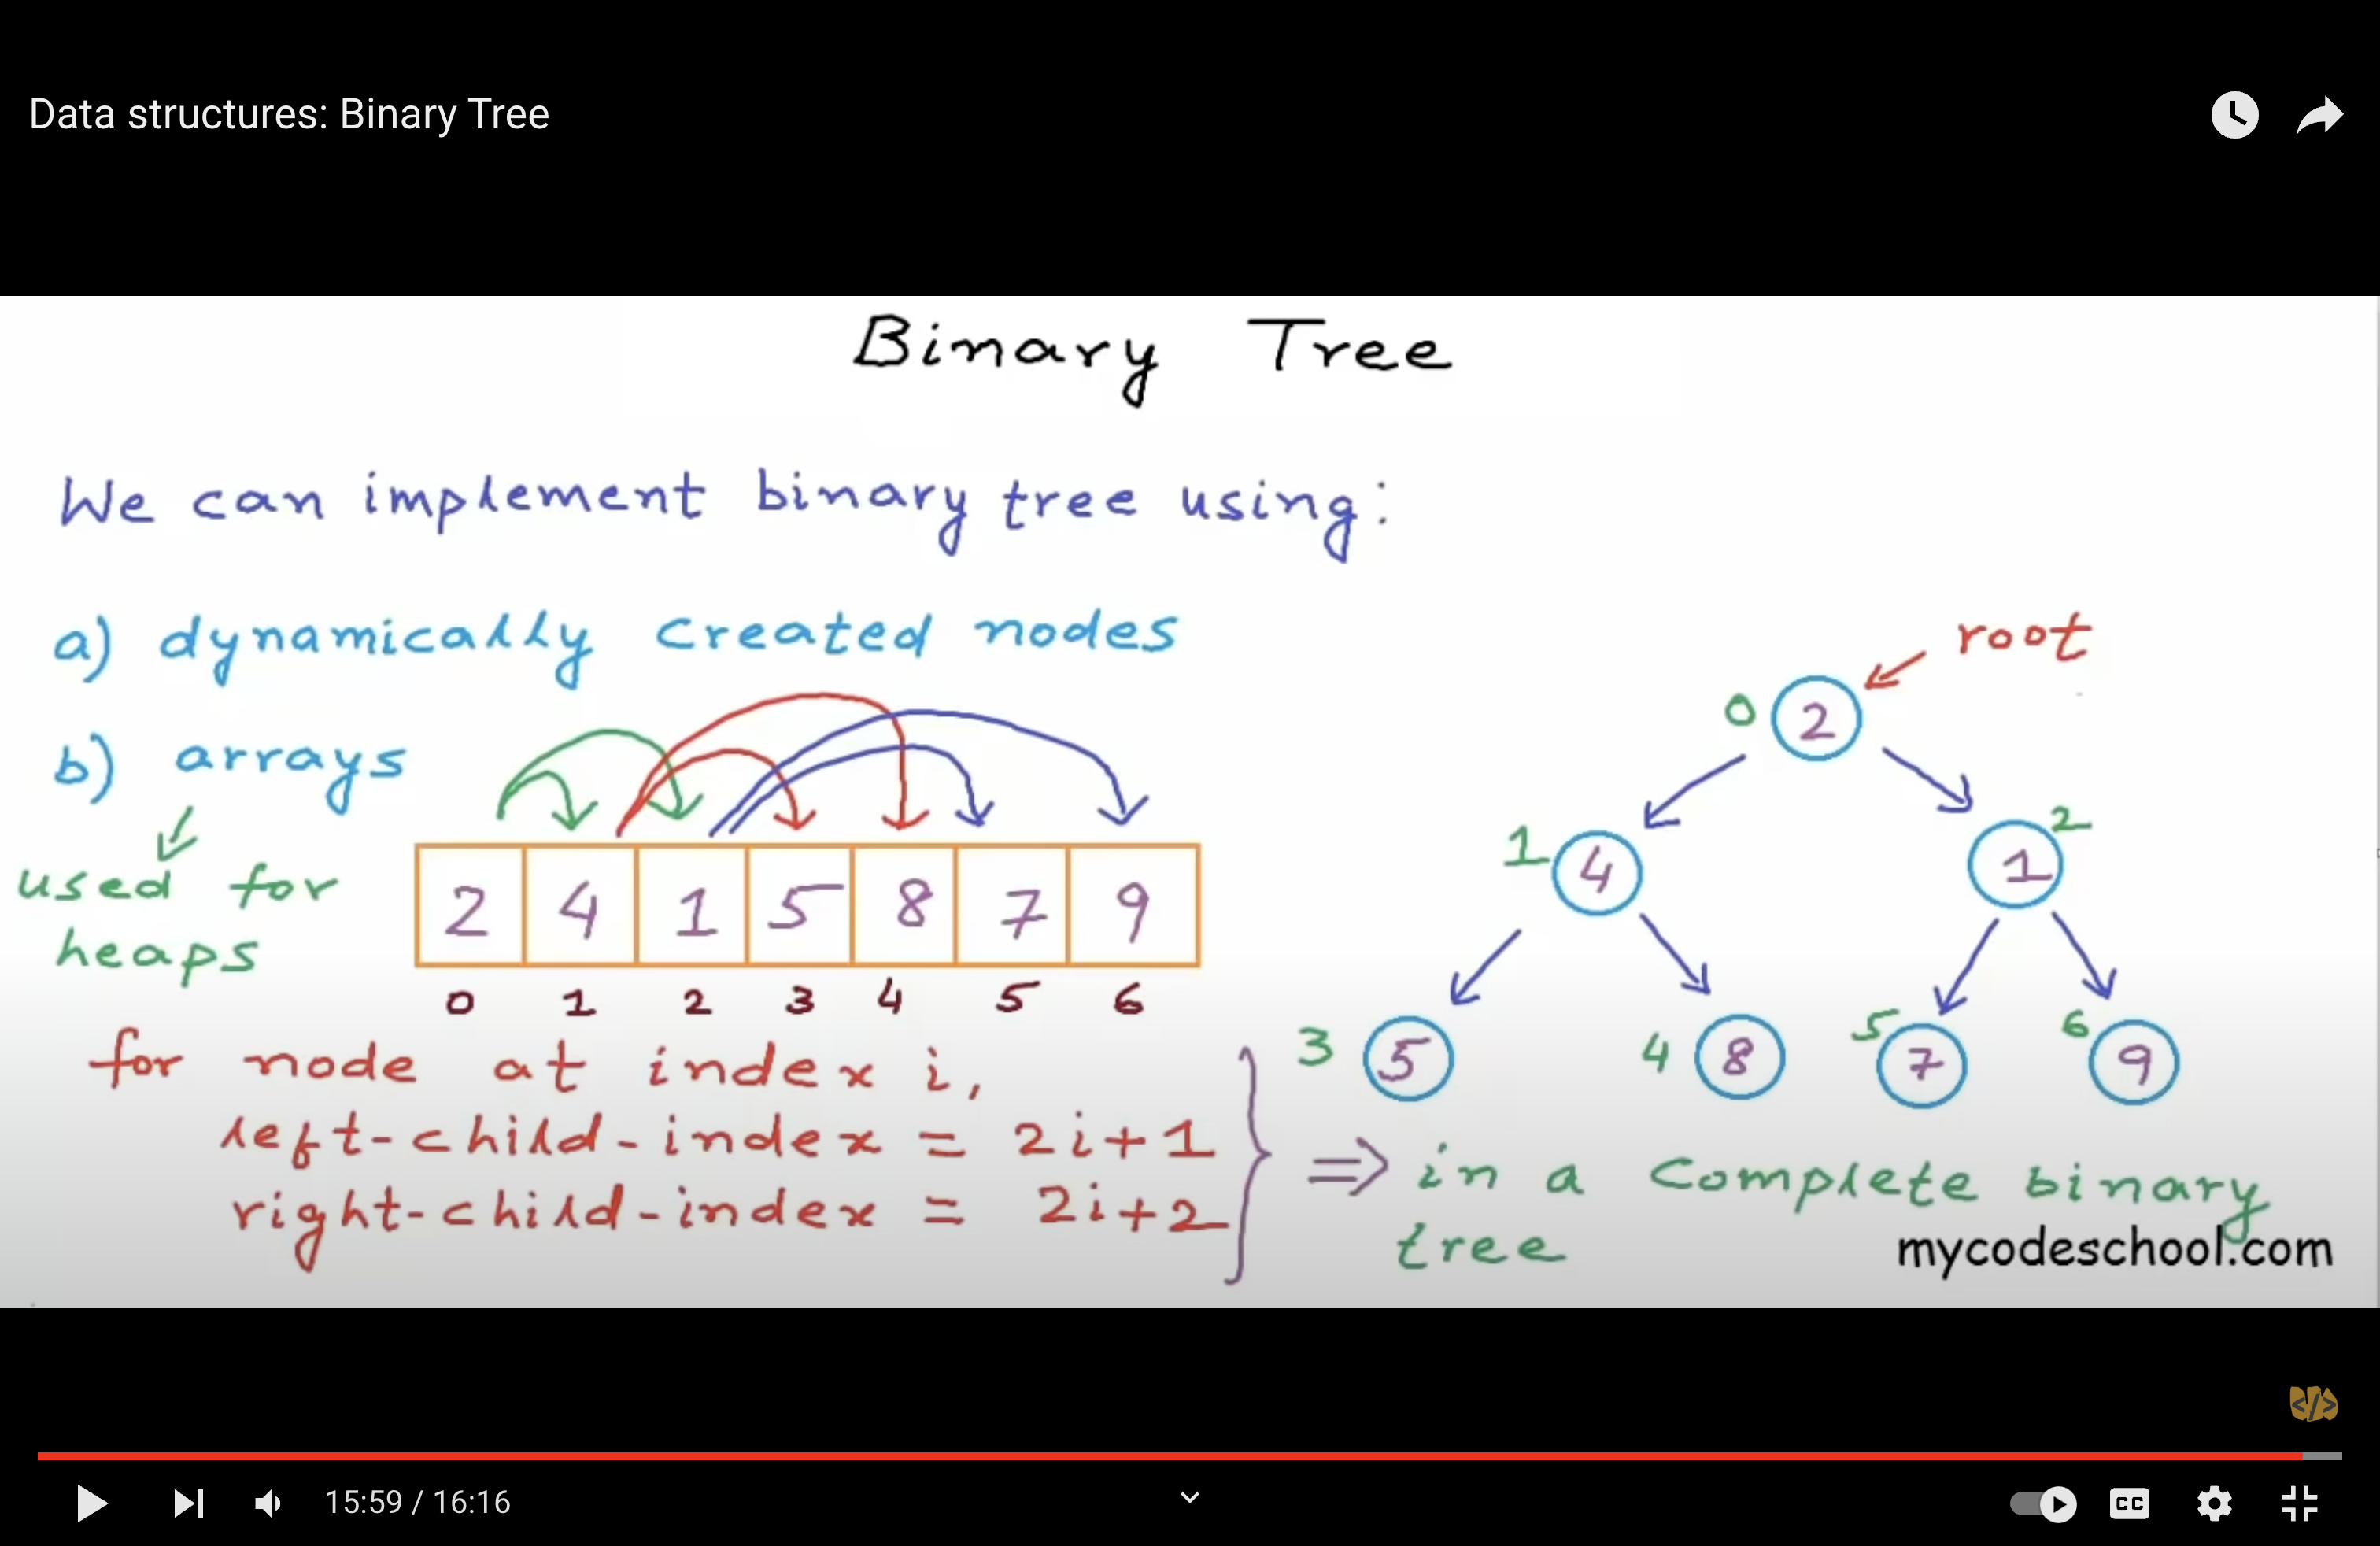 Data structures: Binary Tree
Binary Tree
We can implement binary tree using:
a) dynamically created nodes
b) arrays
used for
heaps
2 4 1 5 8 7 9
0 1 2 3 4 5 6
for node at index i,
left-child-index = 2i+1
right-child-index = 2i+2
root
0 2
1 4
2 1
3 5
4 8
5 7
6 9
⇒ in a complete binary
tree
mycodeschool.com
</>
15:59 / 16:16
CC